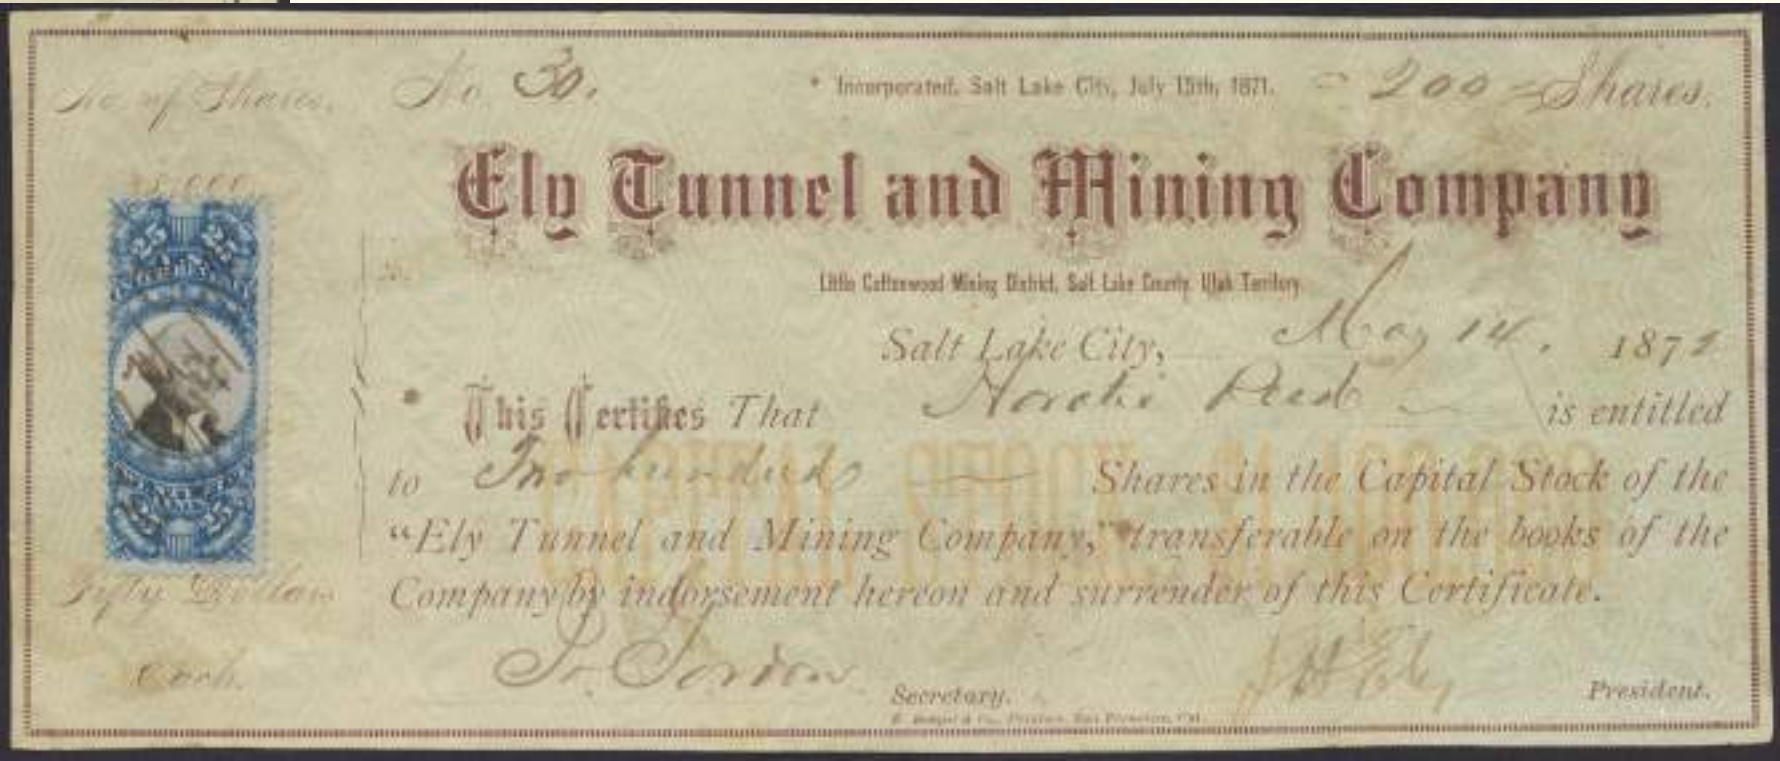 No of Shares.
No. 30.
Incorporated, Salt Lake City, July 15th, 1871.
= 200 = Shares.
Ely Tunnel and Mining Company
25 25
Little Cottonwood Mining District, Salt Lake County, Utah Territory
Salt Lake City, May 14. 1872
This Certifies That is entitled
to Two hundred Shares in the Capital Stock of the
"Ely Tunnel and Mining Company," transferable on the books of the
Company by indorsement hereon and surrender of this Certificate.
Fifty Dollars
each.
Gordon Secretary.
President.